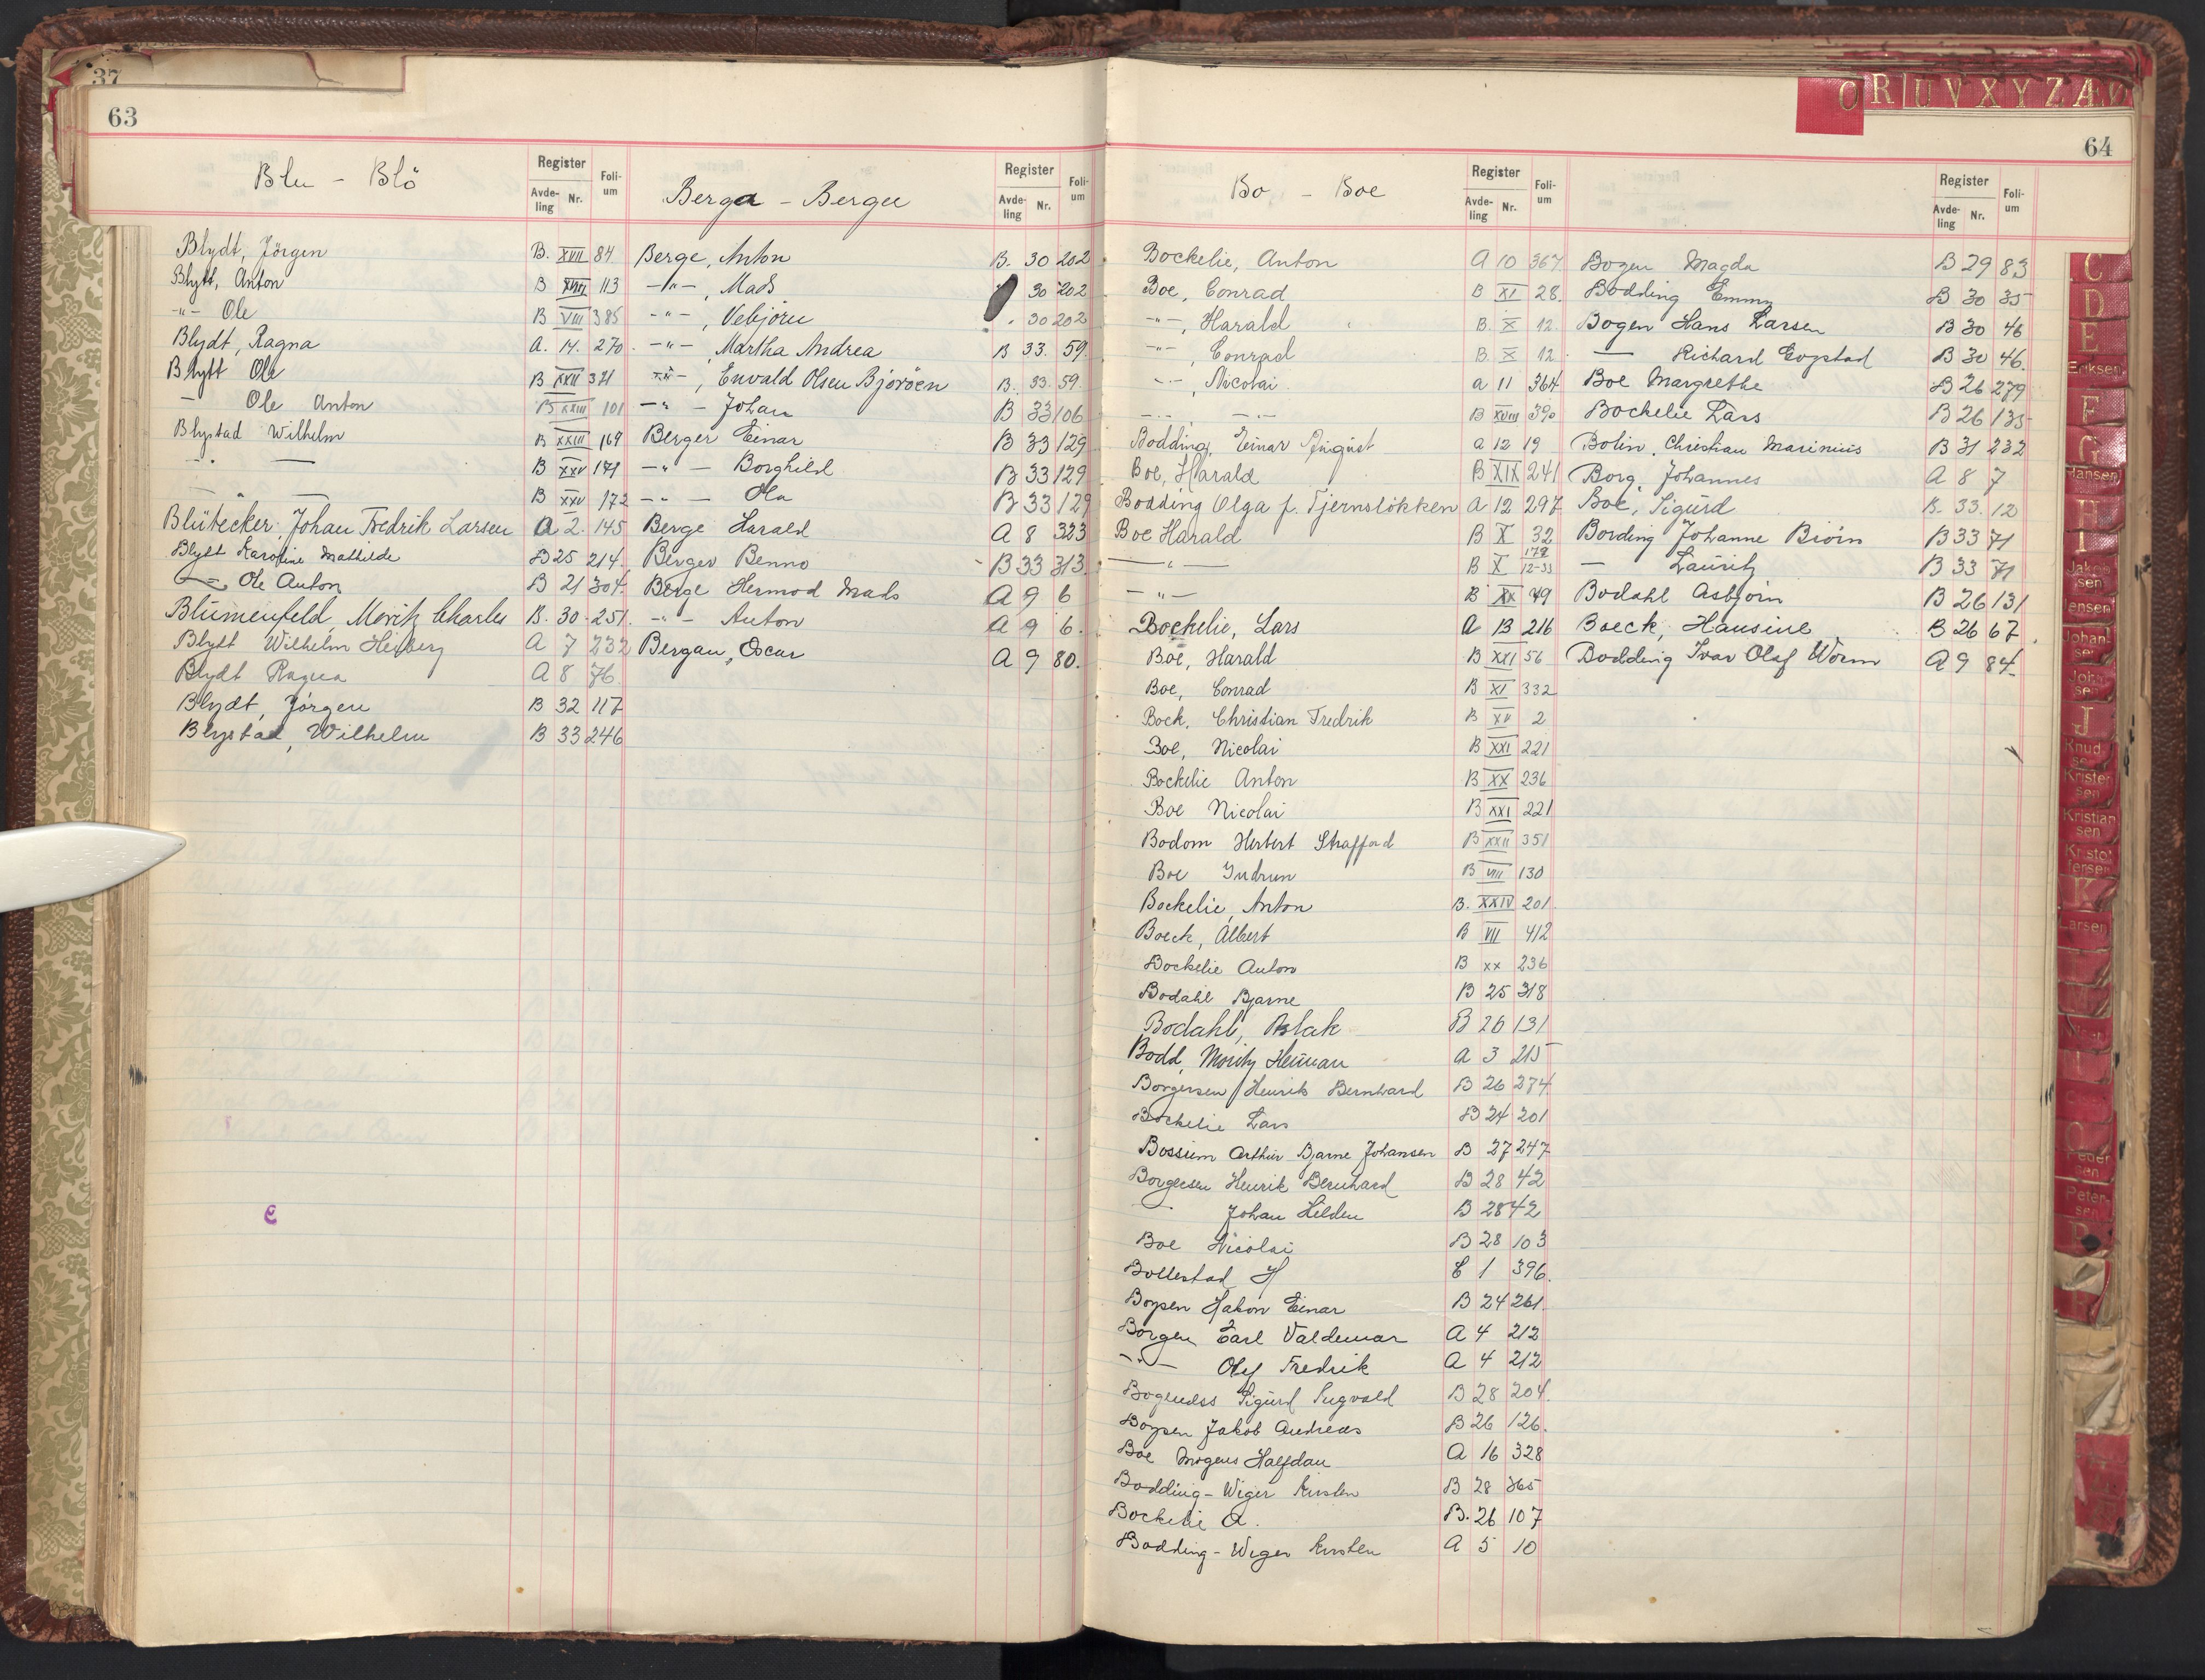 37
63
Blu - Blö
Register
Avde-
ling
Nr.
Foli-
um
Blydt, Jörgen B. XVII 84
Blytt, Anton B XVIII 113
-"- Ole B VIII 385
Blydt, Ragna A. 14. 270
Blytt Ole B XXII 371
- Ole Anton B XXIII 101
Blystad Wilhelm B XXIII 169
-"- — B XXV 171
— — B XXV 172
Blütecker, Johan Fredrik Larsen A 2. 145
Blytt Karoline Mathilde B 25 214
-"- Ole Anton B 21 304
Blumenfeld, Moritz Charles B. 30. 251
Blytt Wilhelm Heiberg A 7 232
Blydt Ragna A 8 76
Blydt, Jörgen B 32 117
Blystad, Wilhelm B 33 246
Berga - Bergee
Register
Avde-
ling
Nr.
Foli-
um
Berge, Anton B. 30 202
-"-, Mads 30 202
-"-, Vebjörn " 30 202
-"- Martha Andrea B 33. 59.
-"-, Envald Olsen Bjoröen B. 33. 59.
-"- Johan B 33 106
Berger Einar B 33 129
-"- Borghild B 33 129
-"- Ola B 33 129
Berge Harald A 8 323
Berger Benno B 33 313
Berge Hermod Mads A 9 6
-"- Anton A 9 6.
Bergau, Oscar A 9 80.
O R U V X Y Z Æ
64
Bo - Boe
Register
Avde-
ling
Nr.
Foli-
um
Bockelie, Anton A 10 367
Boe, Conrad B XI 28.
-"-, Harald B. X 12.
-"-, Conrad B. X 12.
-"-, Nicolai a 11 364
-"- -"- B XVIII 390
Bodding, Einar August a 12 19
Boe, Harald B XIX 241
Bodding Olga f. Tjernslökken A 12 297
Boe Harald B X 32
-"- B X 179 12-33
-"- B XX 49
Bockelie, Lars A 13 216
Boe, Harald B XXI 56
Boe, Conrad B XI 332
Bock, Christian Fredrik B XV 2
Boe, Nicolai B XXI 221
Bockelie Anton B XX 236
Boe Nicolai B XXI 221
Bodom Herbert Strafford B XXII 351
Boe Gudrun B VIII 130
Bockelie, Anton B. XXIV 201
Boeck, Albert B VII 412
Bockelie Anton B XX 236
Bodahl Bjarne B 25 318
Bodahl, Aslak B 26 131
Bodd, Moritz Herman A 3 215
Borgersen Henrik Bernhard B 26 274
Bockelie Lars B 24 201
Bossum Arthur Bjarne Johansen B 27 247
Borgersen Henrik Bernhard B 28 42
- Johan Hilden B 28 42
Boe Nicolai B 28 103
Bollestad H E 1 396
Boysen Hakon Einar B 24 261
Borgen Carl Valdemar A 4 212
-"- Olaf Fredrik A 4 212
Bogendss Sigurd Ingvald B 28 204
Boysen Jakob Andreas B 26 126.
Boe Mogens Halfdan A 16 328
Bodding-Wiger Kirsten B 28 365
Bockelie A. B. 26 107
Bodding-Wiger Kirsten A 5 10
Register
Avde-
ling
Nr.
Foli-
um
Bogen Magda B 29 83
Bodding Emmy B 30 35
Bogen Hans Larsen B 30 46
— Richard Eogstad B 30 46.
Boe Margrethe B 26 279
Bockelie Lars B 26 135
Bolin, Christian Marinius B 31 232
Borg, Johannes A 8 7
Boe, Sigurd B. 33. 12
Bording Johanne Biörn B 33 71
— Lauritz B 33 71
Bodahl Asbjörn B 26 131
Boeck, Hansine B 26 67
Bodding Ivar Olaf Worm A 9 84
C
D
E
Eriksen
F
G
Hansen
H
I
Jakob
sen
Jensen
Johan-
sen
Joh
sen
J
Knud-
sen
Kristen
sen
Kristian
sen
Kristof
fersen
K
Larsen
M
O
Peder
sen
Peter-
sen